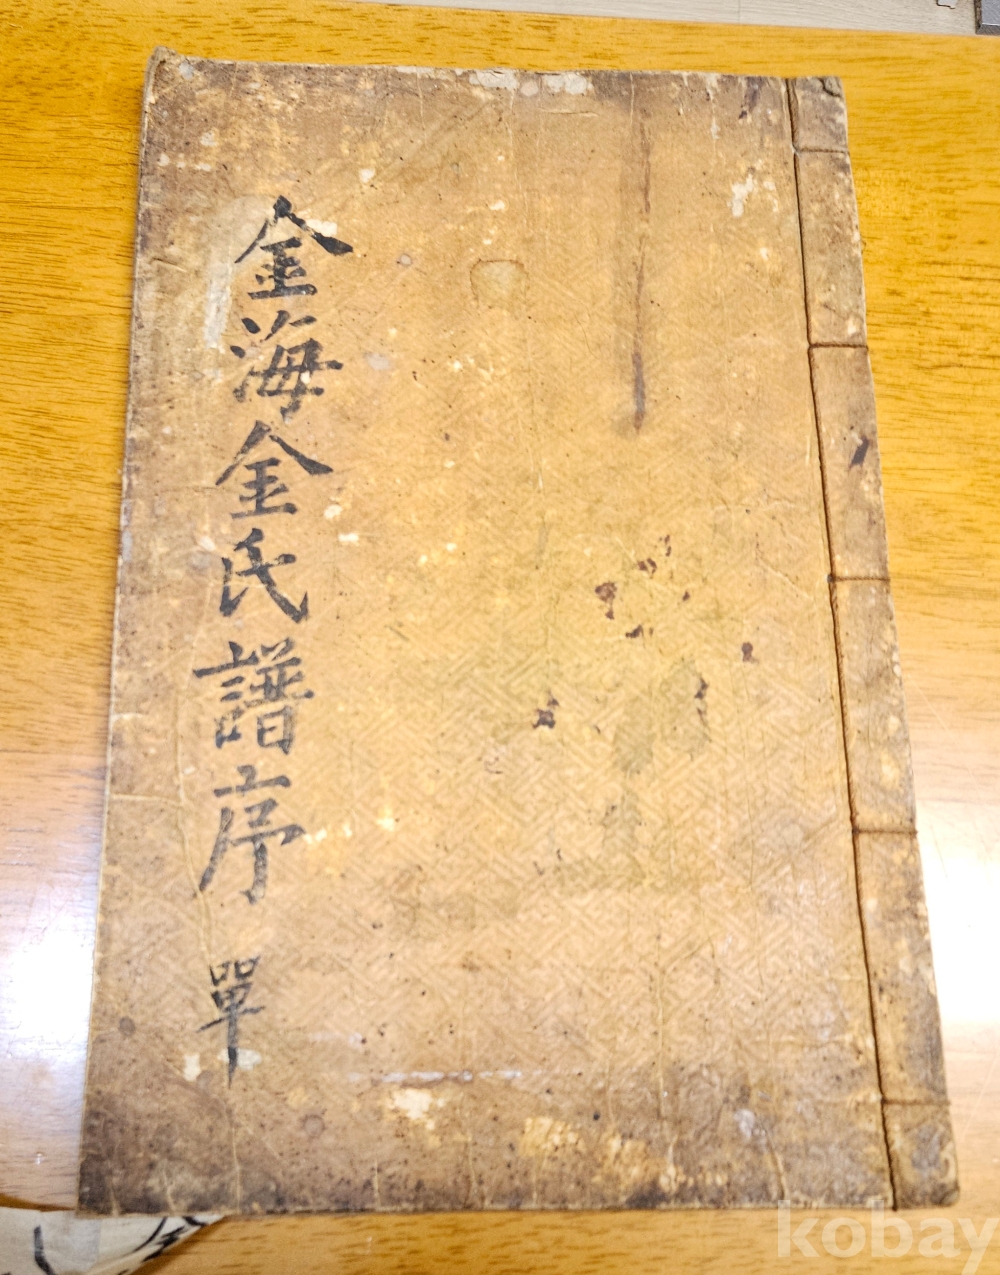 金海金氏譜序 單
kobay